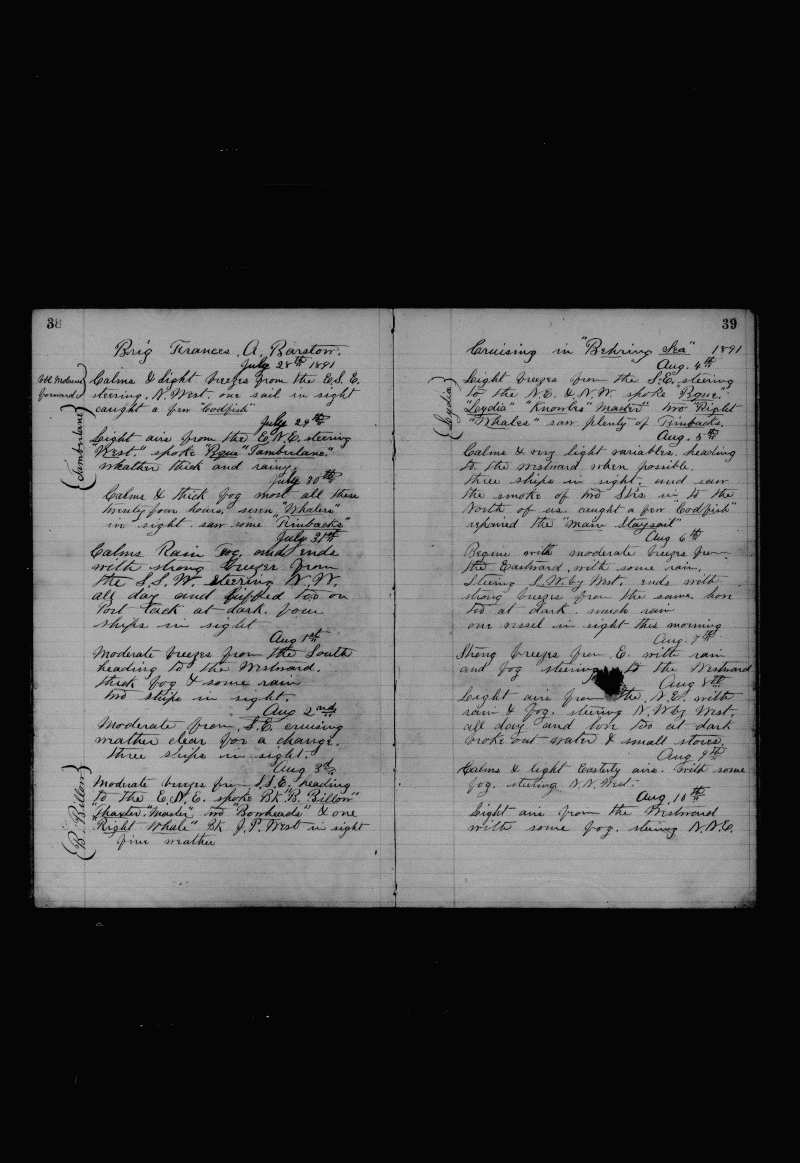 38
Brig Frances A. Barstow.
July 28th 1891
forward
Calms & Light breezes from the E.S.E.
steering, N. West. one sail in sight
caught a few "Codfish"
July 29th
(Tamberlane)
Light airs from the E.N.E. steering
"West." spoke "Bque" "Tamberlane."
weather thick and rainy.
July 30th
Calms & thick fog most all these
twenty four hours, seven "Whalers"
in sight. saw some "Finbacks"
July 31st
Calms Rain Fog, and ends
with strong breezes from
the S.S.W. steering N.W.
all day and too on
Port tack at dark. four
ships in sight
Aug 1st
Moderate breezes from the South
heading to the Westward.
thick fog & some rain
two ships in sight.
Aug 2nd
Moderate from S.E. cruising
weather clear for a change.
three ships in sight.
Aug 3d
(B. Billow)
Moderate breezes fm S.S.E. heading
to the E.N.E. spoke Bk "B. Billow"
"Master" two "Bowheads" & one
Right Whale" Bk J.P. West in sight
fine weather
39
Cruising in "Behring Sea" 1891
Aug. 4th
(Lydia)
Light breezes from the S.E. steering
to the N.E. & N.W. spoke "Bque."
"Lydia" "Knowles" "Master" two "Right
"Whales" saw plenty of Finbacks.
Aug. 5th
Calms & very light variables, heading
to the westward when possible.
three ships in sight. and saw
the smoke of two Strs in to the
North of us. caught a few "Codfish"
repaired the "Main Staysail"
Aug 6th
Begins with moderate breezes from
the Eastward, with some rain.
steering S.W. by West, ends with
strong breezes from the same. hove
too at dark. much rain
one vessel in sight this morning
Aug. 7th
Strong breezes from E. with rain
and fog steering to the Westward
Aug 8th
Light airs from the N.E. with
rain & fog. steering N.W by West,
all day and hove too at dark
broke out water & small stores,
Aug 9th
Calms & light Easterly airs. with some
fog. steering N.N. West.
Aug. 10th
Light airs from the Westward
with some fog. steering N.N.E.